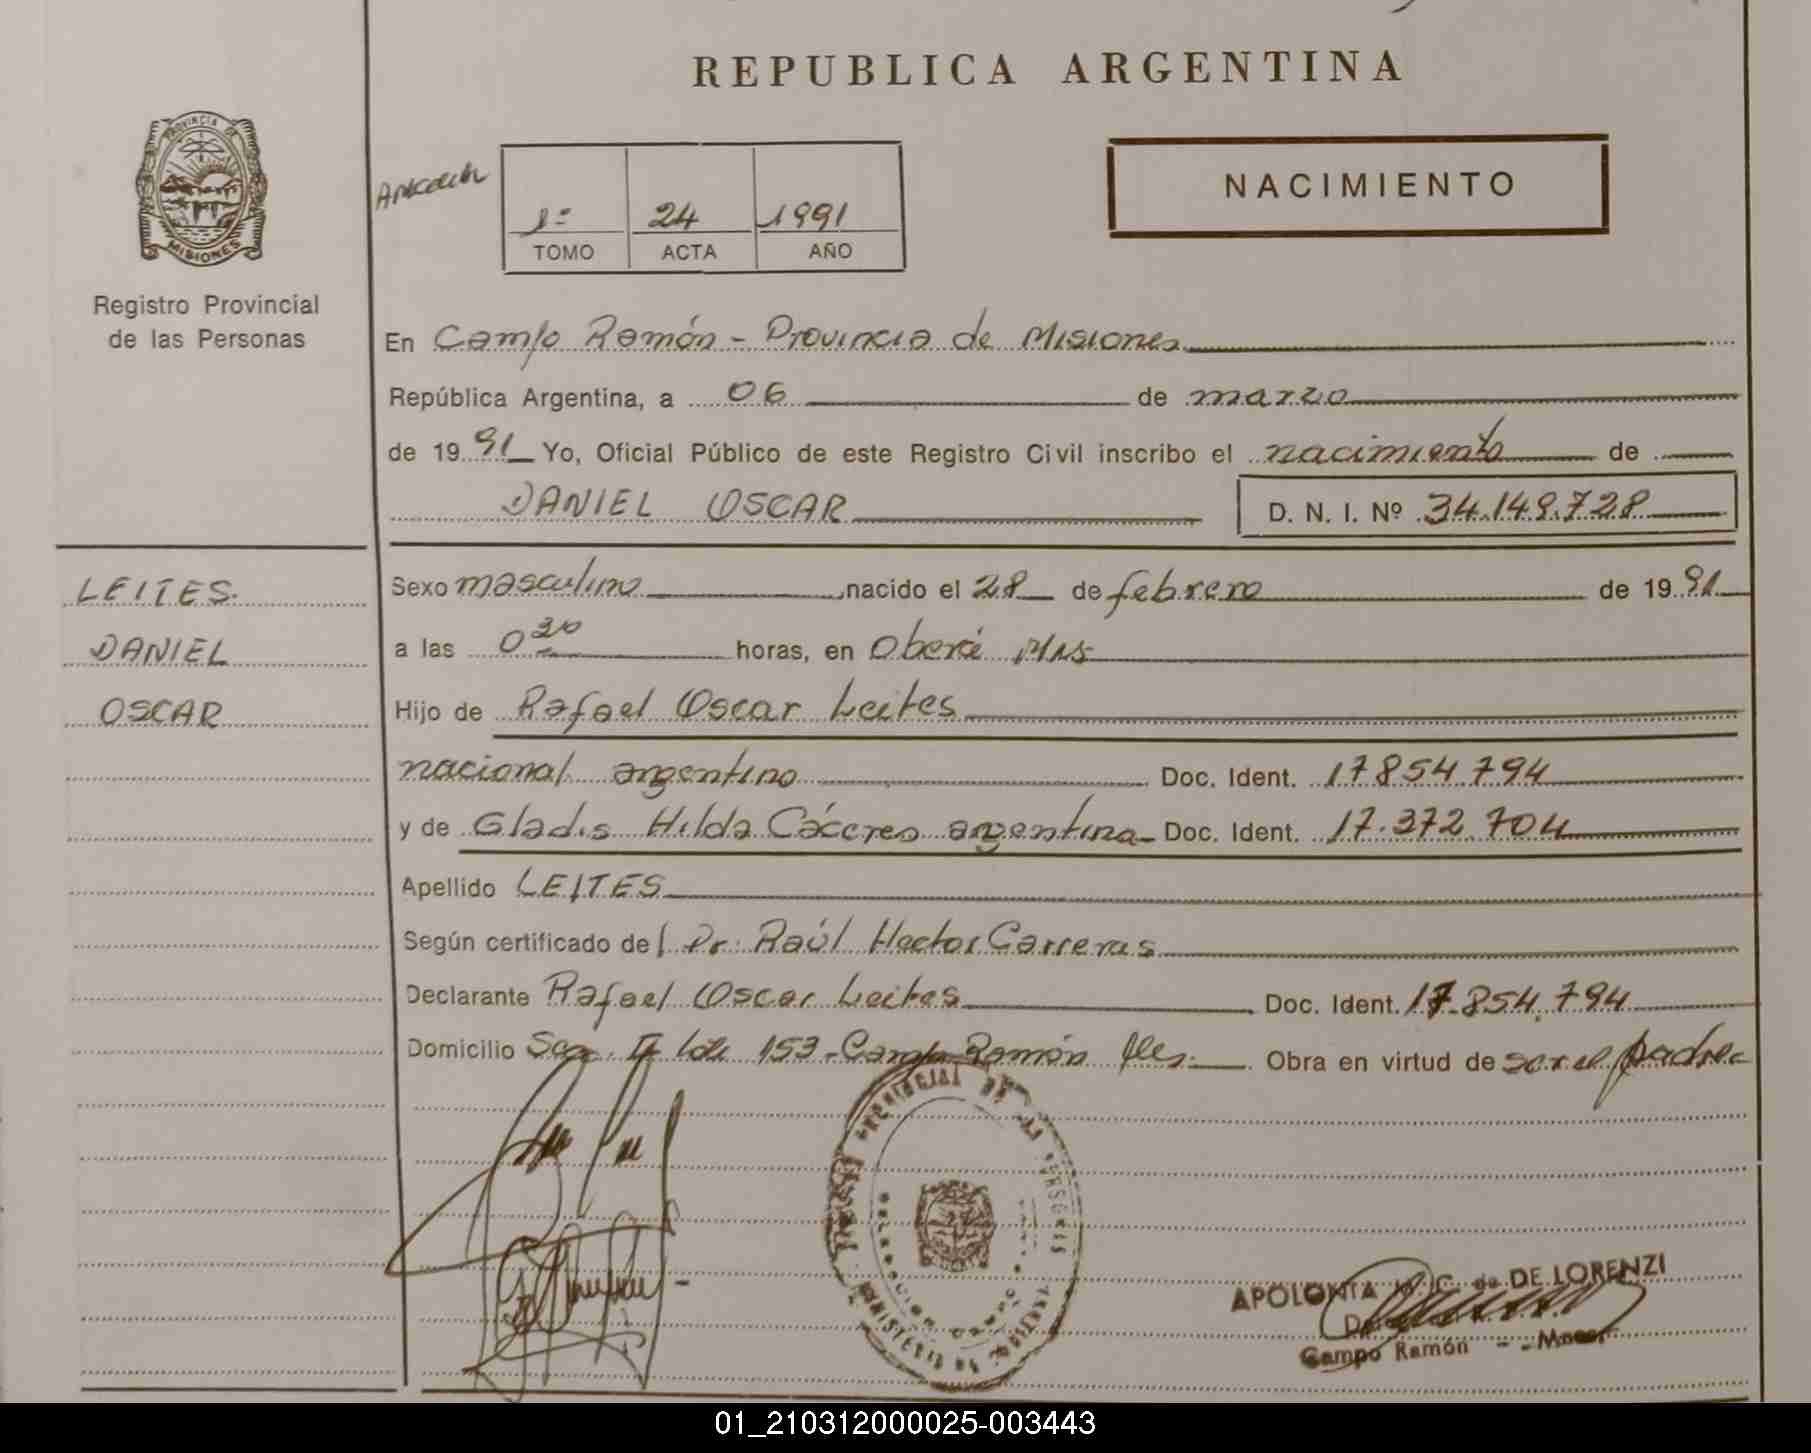 REPUBLICA ARGENTINA
PROVINCIA DE
MISIONES
Registro Provincial
de las Personas
1º 24 1991
TOMO ACTA AÑO
NACIMIENTO
En Campo Ramón - Provincia de Misiones
República Argentina, a 06 de marzo
de 1991 Yo, Oficial Público de este Registro Civil inscribo el nacimiento de
DANIEL OSCAR D. N. I. Nº 34.149.728
LEITES.
DANIEL
OSCAR
Sexo masculino nacido el 28 de febrero de 1991
a las 0 30 horas, en Oberá Mns
Hijo de Rafael Oscar Leites
nacional argentino Doc. Ident. 17854.794
y de Gladis Hilda Cáceres argentina Doc. Ident. 17.372.704
Apellido LEITES
Según certificado del Dr. Raúl Hector Carreras
Declarante Rafael Oscar Leites Doc. Ident. 17.854.794
Domicilio Sec. II lote 153 - Campo Ramón Mes. Obra en virtud de ser el padre
PROVINCIAL DE LAS PERSONAS
APOLONIA M. C. de DE LORENZI
Campo Ramón - Mnes.
01_210312000025-003443